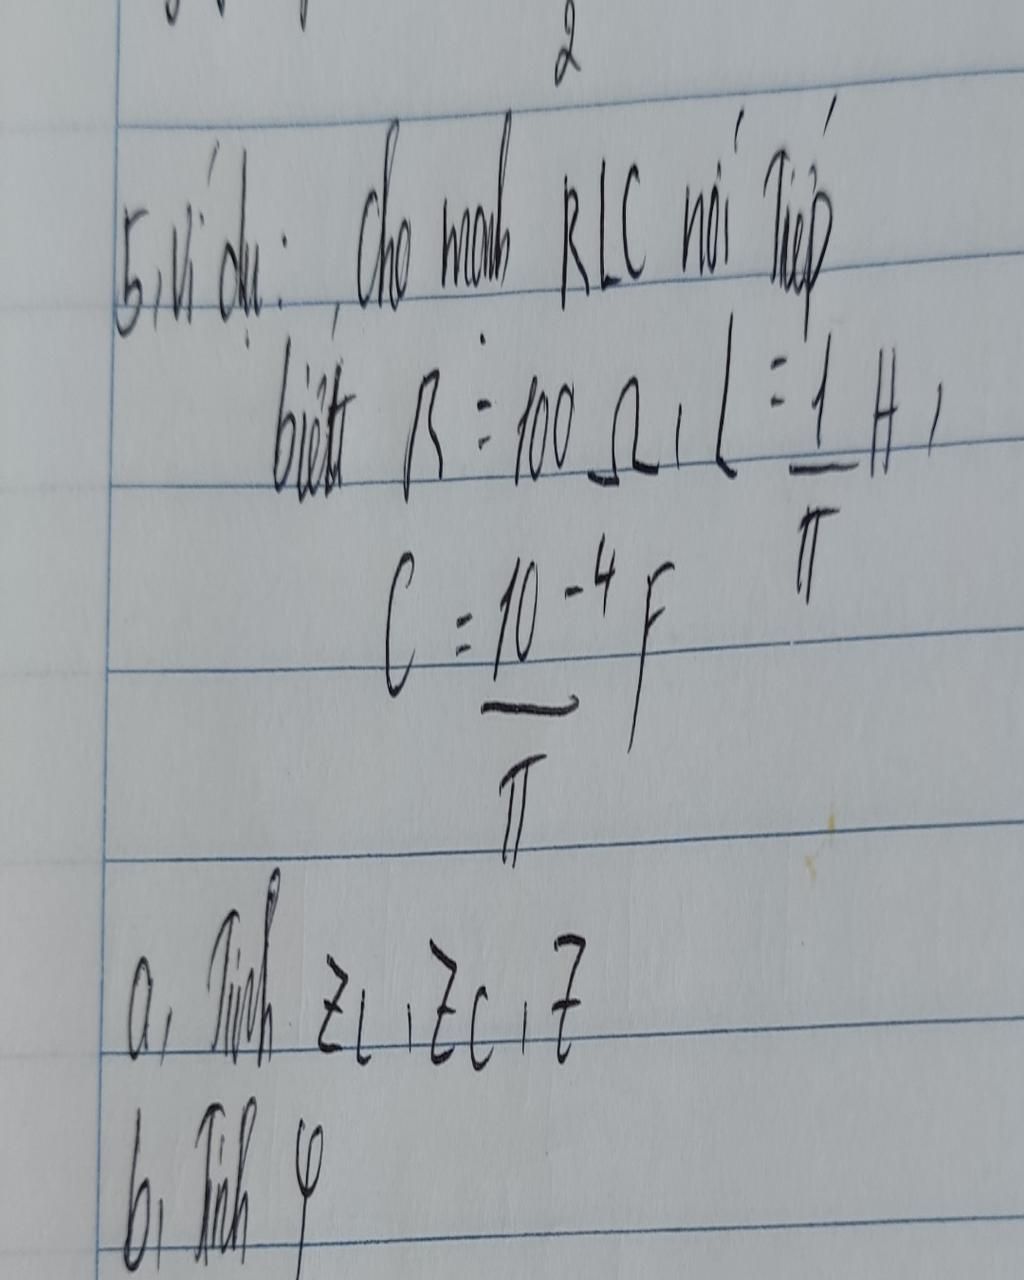 2
5, ví dụ: Cho mạch RLC nối Tiếp
biết R = 100 Ω, L = 1 H,
π
C = 10 -4 F
π
a, Tính ZL, ZC, Z
b, Tính φ